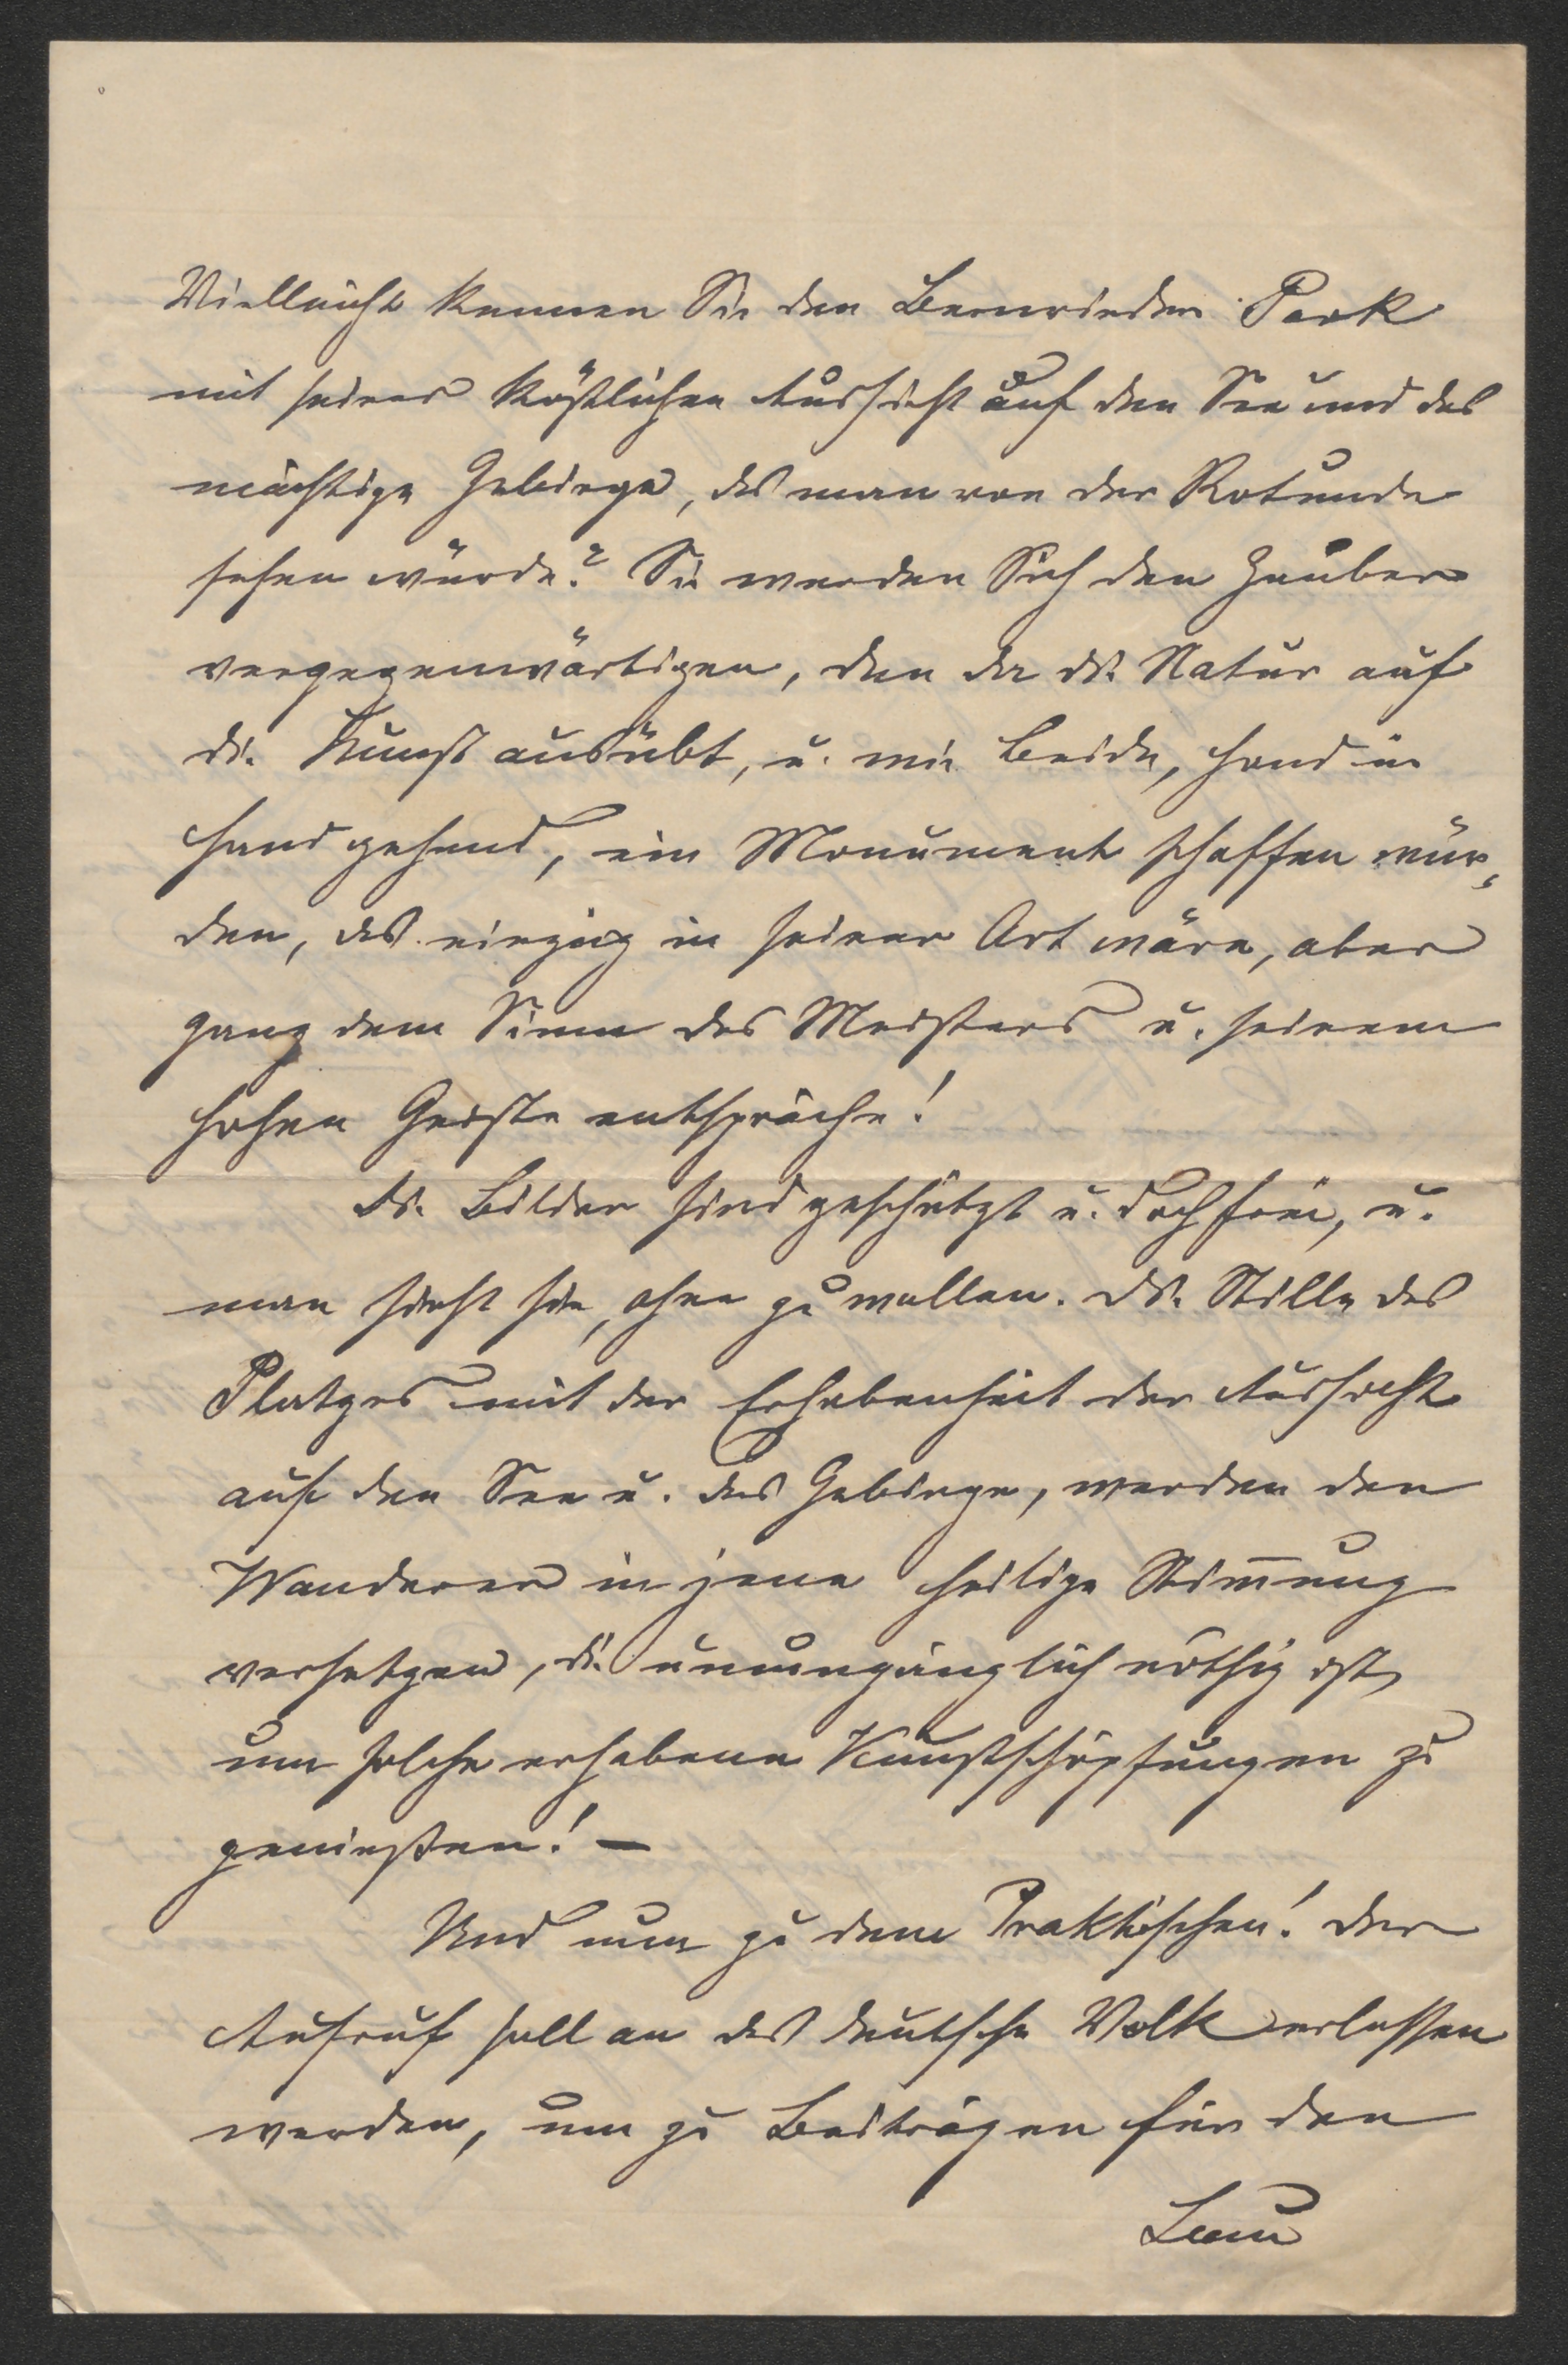 Vielleicht kennen Sie den Bernrieder Park
mit seiner köstlichen Aussicht auf den See und das
mächtige Gebirge, das man von der Rotunde
sehen würde? Sie werden Sich den Zauber
vergegenwärtigen, den da die Natur auf
die Kunst ausübt, u. wie beide, Hand in
Hand gehend, ein Monument schaffen wür-
den, das einzig in seiner Art wäre, aber
ganz dem Sinne des Meisters u. seinem
hohen Geiste entspräche!
Die Bilder sind geschützt u. doch frei, u.
man sieht sie, ohne zu wollen. Die Stille des
Platzes mit der Erhabenheit der Aussicht
auf den See u. das Gebirge, werden den
Wanderer in jene heilige Stim̄ung
versetzen, die unumgänglich nöthig ist,
um solche erhabene Kunstschöpfungen zu
genießen! —
Und nun zu dem Praktischen! Der
Aufruf soll an das deutsche Volk erlassen
werden, um zu Beiträgen für den
Bau